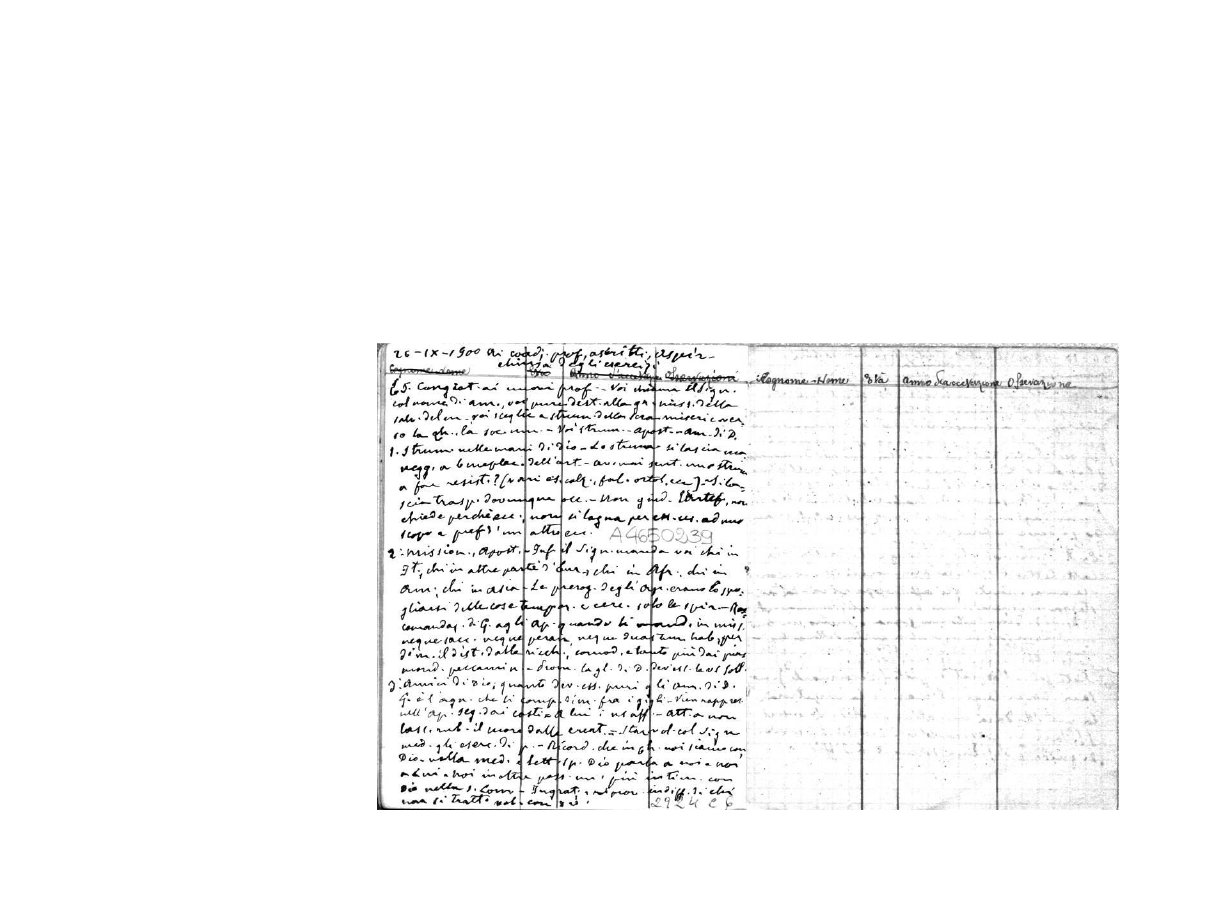 26-IX-1900 Ai coad. prof, ascritti, aspir-
chiusa degli eserc.
Cognome e nome Età Anno d'accettaz Osservazioni
65. Congrat. ai nuovi prof.- Voi chiama il Sign.
col nome di am., voi pure dest. alla
salv. del m.- voi sceglie a strum. della sua misericor. ver
so la gh., la soc. um.- Voi strum.- apost.- am. di D.
1. Strum. nelle mani di Dio - Lo strum. si lascia ma
negg. a beneplac. dell'art.- 
a far resist.? (vari es. calz., fal. ortol, ecc)- Si la-
scia trasp. dovunque occ.- Non giud. l'artef., non
chiede perchè ecc., non si lagna per ess. us. ad uno
scopo a pref. d'un altro ecc. A4650239
2. Mission., apost.- Inf. il Sign. manda voi chi in
It., chi in altre parte d'Eur., chi in Afr., chi in
Am., chi in Asia - Le prerog. degli Ap. erano lo spo-
gliarsi delle cose tempor. e cerc. solo le spir.- Rac
comandaz. di G. agli Ap. quando li mand. in miss.
neque sacc. neque peram, neque duas tun. hab., per
dim. il dist. dalle ricch., comod. e tanto più dai piac
mond. peccamin.- Prom. la gl. di D. dev'ess. lo us. soll.
3. Amici di Dio; quanto dev. ess. puri gli am. di D.
G. è l'agn. che si comp. di m. fra i gigli - Vien rappres.
nell'Ap. seg. dai casti
lasc. rub. il cuore dalle creat.- Star d. col Sign
med. gli eserc. di p.- Ricord. che in gh. noi siamo con
Dio - nella med. e lett. sp. Dio parla a noi e noi
a Lui - noi inoltre poss. un. più intim. con
Dio nella S. Com.- Ingrat., indiff. di chi
non si tratt. vol. con Dio.
2924 C 6
Cognome - Nome Età Anno d'accettazione Osservazione